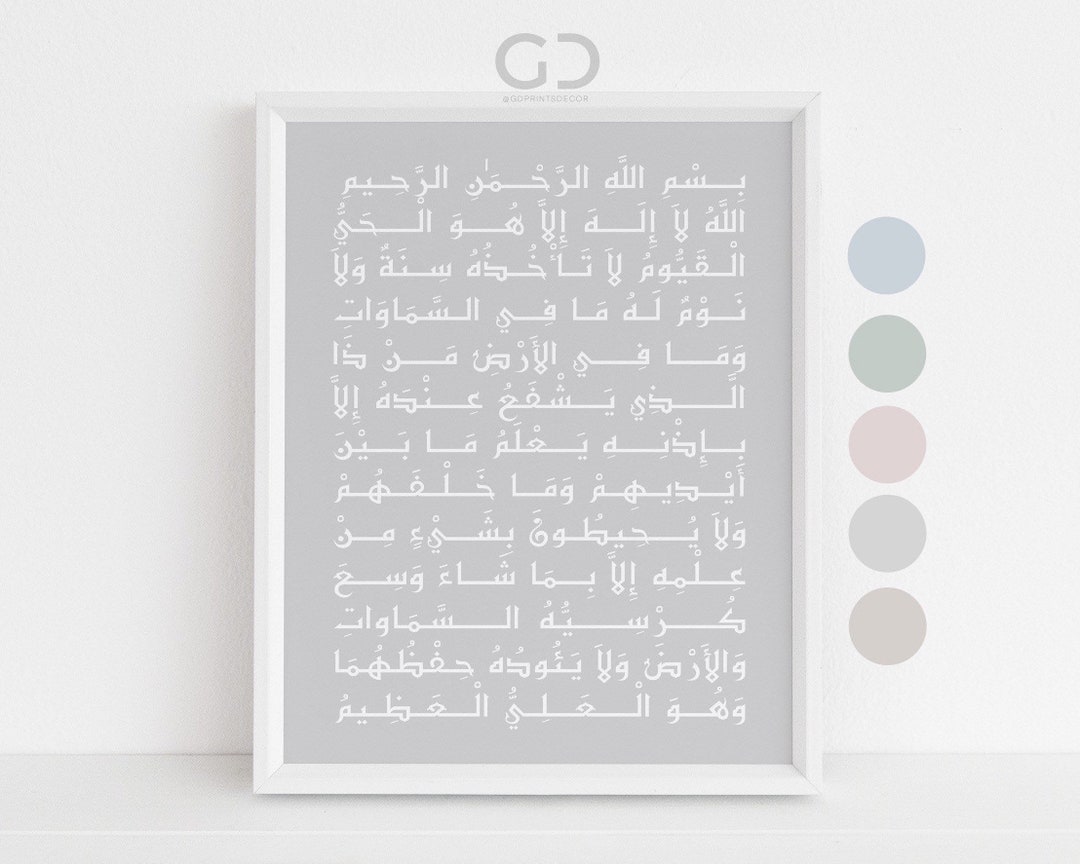 GD
@GDPRINTSDECOR
بِسْمِ اللَّهِ الرَّحْمَٰنِ الرَّحِيمِ
اللَّهُ لاَ إِلَهَ إِلاَّ هُوَ الْحَيُّ
الْقَيُّومُ لاَ تَأْخُذُهُ سِنَةٌ وَلاَ
نَوْمٌ لَهُ مَا فِي السَّمَاوَاتِ
وَمَا فِي الأَرْضِ مَنْ ذَا
الَّذِي يَشْفَعُ عِنْدَهُ إِلاَّ
بِإِذْنِهِ يَعْلَمُ مَا بَيْنَ
أَيْدِيهِمْ وَمَا خَلْفَهُمْ
وَلاَ يُحِيطُونَ بِشَيْءٍ مِنْ
عِلْمِهِ إِلاَّ بِمَا شَاءَ وَسِعَ
كُرْسِيُّهُ السَّمَاواتِ
وَالأَرْضَ وَلاَ يَئُودُهُ حِفْظُهُمَا
وَهُوَ الْعَلِيُّ الْعَظِيمُ